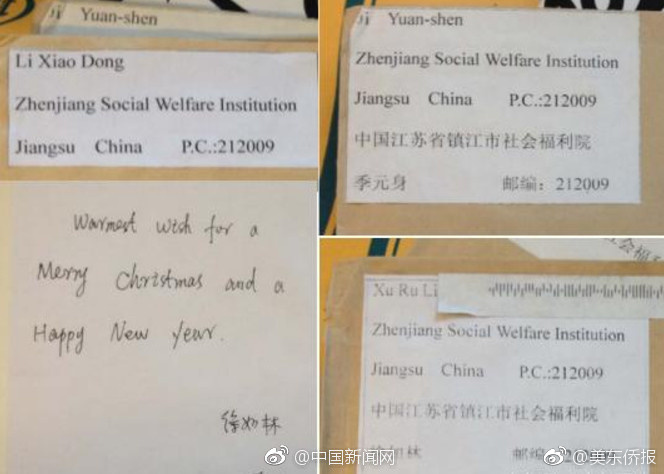 Ji Yuan-shen
Li Xiao Dong
Zhenjiang Social Welfare Institution
Jiangsu China P.C.:212009
Warmest wish for a
Merry Christmas and a
Happy New Year.
徐如林
Ji Yuan-shen
Zhenjiang Social Welfare Institution
Jiangsu China P.C.:212009
中国江苏省镇江市社会福利院
季元身 邮编：212009
会福利
Xu Ru Li
Zhenjiang Social Welfare Institution
Jiangsu China P.C.:212009
中国江苏省镇江市社会福利院
徐如林 邮编
@中国新闻网
@美东侨报